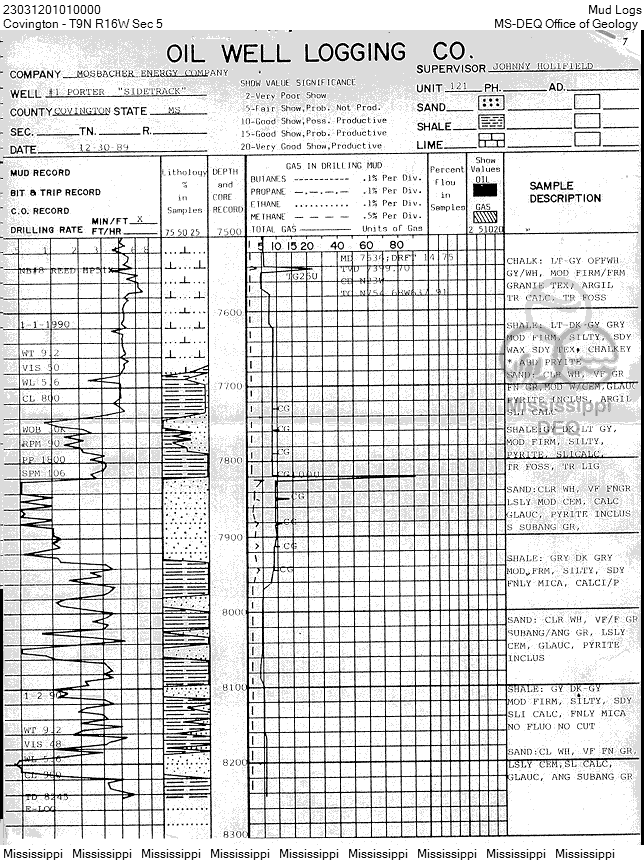 23031201010000
Mud Logs
Covington - T9N R16W Sec 5
MS-DEQ Office of Geology
7
OIL WELL LOGGING CO.
COMPANY MOSBACHER ENERGY COMPANY
WELL #1 PORTER "SIDETRACK"
COUNTY COVINGTON STATE MS
SEC. TN. R.
DATE 12-30-89
SHOW VALUE SIGNIFICANCE
2-Very Poor Show
5-Fair Show, Prob. Not Prod.
10-Good Show, Poss. Productive
15-Good Show, Prob. Productive
20-Very Good Show, Productive
SUPERVISOR JOHNNY HOLIFIELD
UNIT 121 PH. AD.
SAND
SHALE
LIME
MUD RECORD
BIT & TRIP RECORD
C.O. RECORD
MIN/FT X
DRILLING RATE FT/HR
Lithology
%
in
Samples
75 50 25
DEPTH
and
CORE
RECORD
7500
GAS IN DRILLING MUD
BUTANES .1% Per Div.
PROPANE .1% Per Div.
ETHANE .1% Per Div.
METHANE .5% Per Div.
TOTAL GAS Units of Gas
Percent
flou
in
Samples
Show
Values
OIL
GAS
2 5 10 20
SAMPLE
DESCRIPTION
1 2 3 4 6 8
5 10 15 20 40 60 80
MD 7536;DRFT 14.75
TVD 7399.70
TG25U
1-1-1990
WT 9.2
VIS 50
WL 5.6
CL 800
RPM 90
PP 1800
SPM 106
7600
7700
7800
7900
8000
8100
8200
8300
CG
CG
CG
CG
CG
CG
1-2-90
WT 9.2
VIS 48
WL 5.6
TD 8245
E-LOG
CHALK: LT-GY OFFWH
GY/WH, MOD FIRM/FRM
GRANIE TEX, ARGIL
TR CALC, TR FOSS
SHALE: LT-DK-GY GRY
MOD FIRM, SILTY, SDY
WAX SDY TEX, CHALKEY
SAND: CLR WH, VF GR
FN GR,MOD W/CEM,GLAUC
PYRITE INCLUS, ARGIL
SLI CALC
SHALE:GY DK-LT GY,
MOD FIRM, SILTY,
PYRITE, SLICALC,
TR FOSS, TR LIG
SAND:CLR WH, VF FNGR
LSLY MOD CEM, CALC
GLAUC, PYRITE INCLUS
S SUBANG GR,
SHALE: GRY DK GRY
MOD,FRM, SILTY, SDY
FNLY MICA, CALCI/P
SAND: CLR WH, VF/F GR
SUBANG/ANG GR, LSLY
CEM, GLAUC, PYRITE
INCLUS
SHALE: GY DK-GY
MOD FIRM, SILTY, SDY
SLI CALC, FNLY MICA
NO FLUO NO CUT
SAND:CL WH, VF FN GR,
LSLY CEM,SL CALC,
GLAUC, ANG SUBANG GR
Mississippi
DEQ
Mississippi Mississippi Mississippi Mississippi Mississippi Mississippi Mississippi Mississippi Mississippi